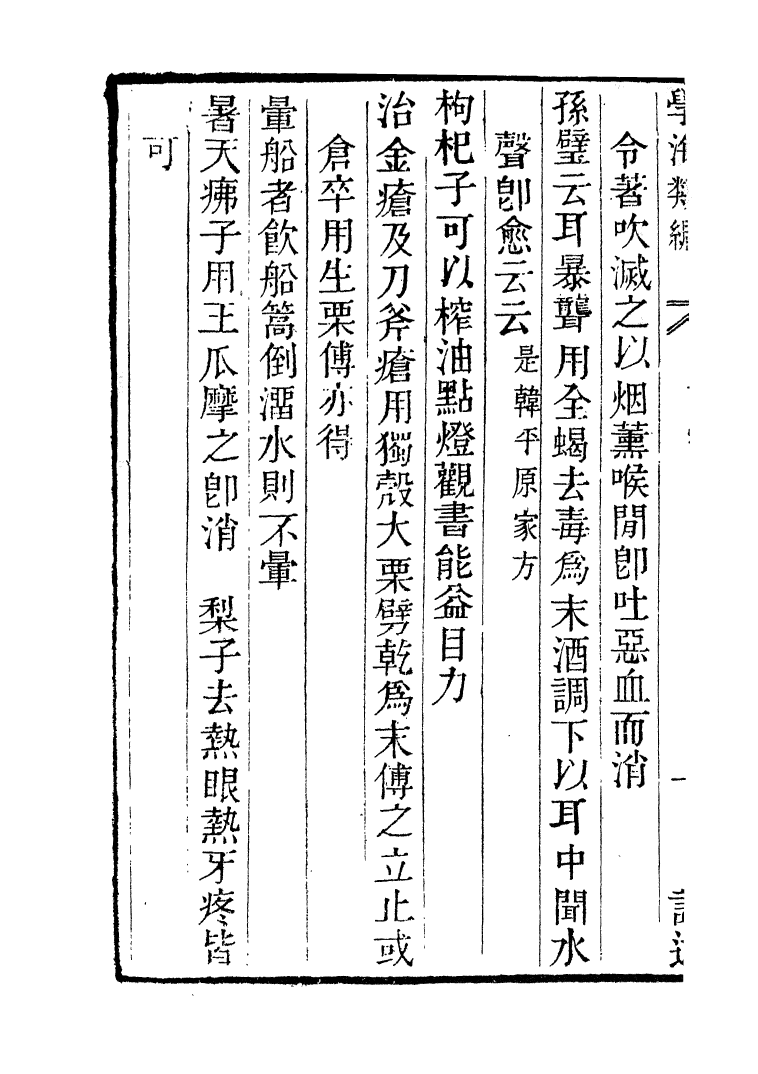 學海類編
令著吹滅之以烟薰喉閒卽吐惡血而消
孫璧云耳暴聾用全蝎去毒爲末酒調下以耳中聞水
聲卽愈云云是韓平原家方
枸杞子可以榨油點燈觀書能益目力
治金瘡及刀斧瘡用獨殼大栗劈乾爲末傅之立止或
倉卒用生栗傅亦得
暈船者飮船篙倒溜水則不暈
暑天疿子用王瓜摩之卽消　梨子去熱眼熱牙疼皆
可